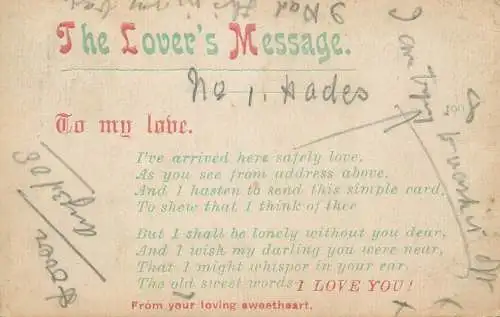 The Lover's Message.
No 1. Hades
To my love.
I've arrived here safely love,
As you see from address above.
And I hasten to send this simple card,
To shew that I think of thee
But I shall be lonely without you dear,
And I wish my darling you were near,
That I might whisper in your ear,
The old sweet words I LOVE YOU!
From your loving sweetheart.
190
I am trying
Dover